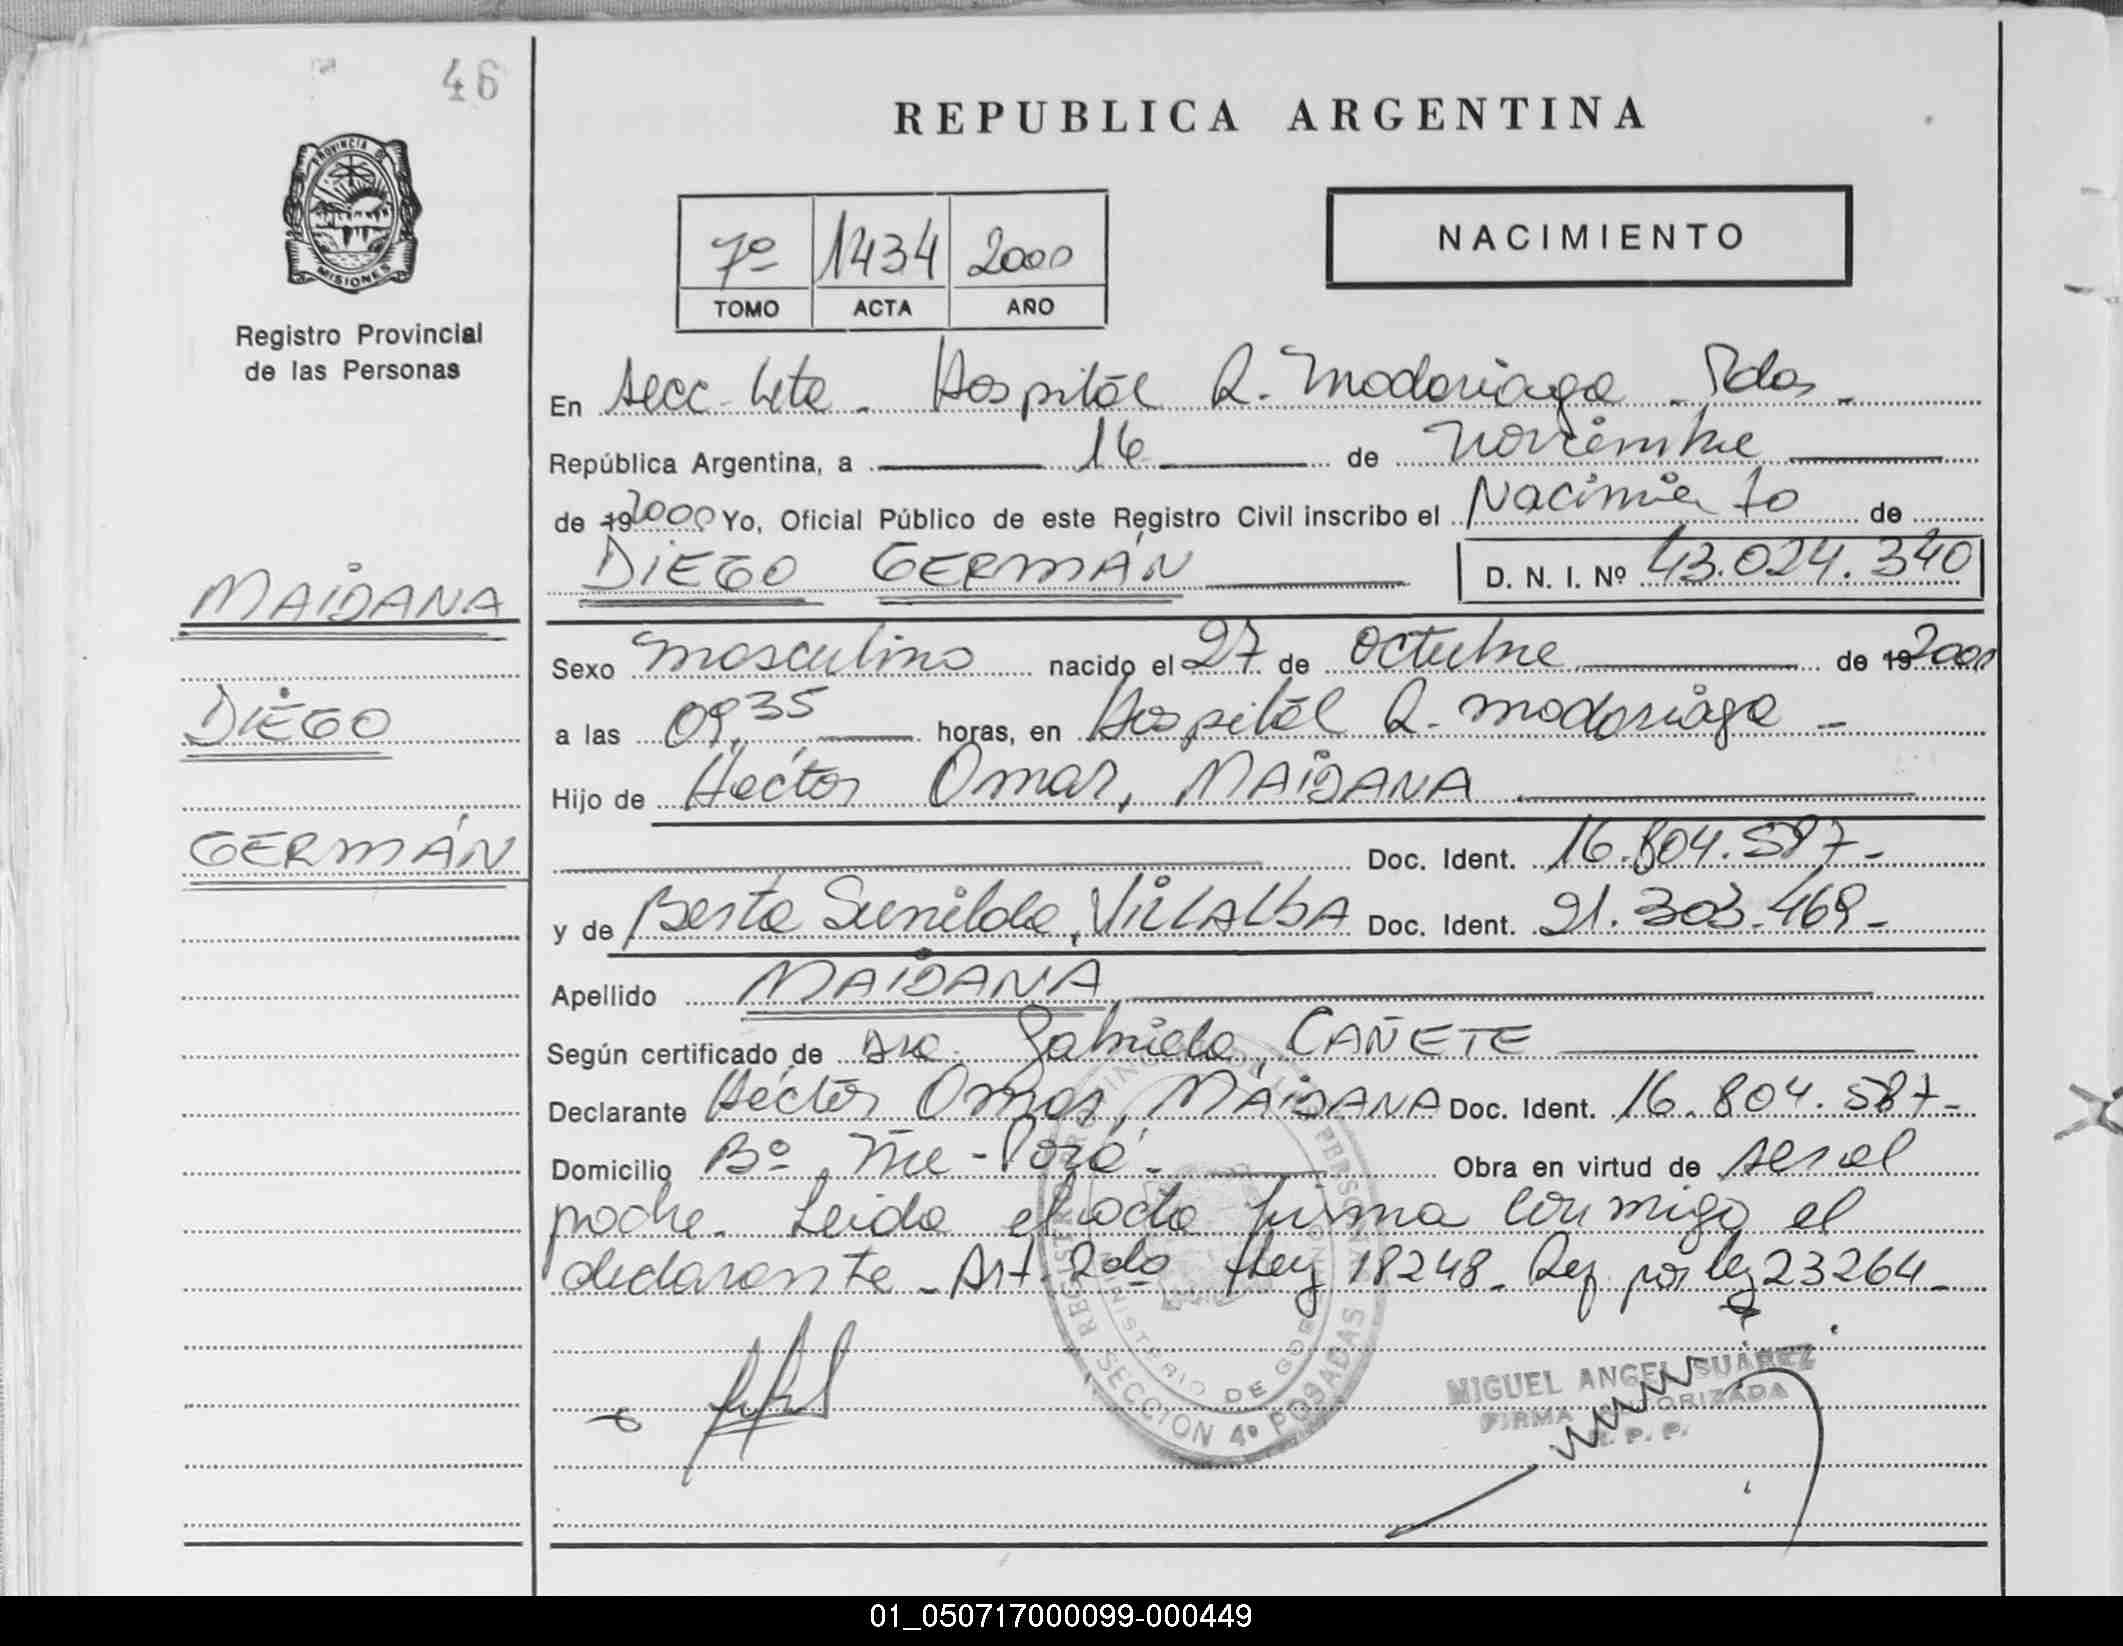 46
REPUBLICA ARGENTINA
PROVINCIA DE MISIONES
Registro Provincial
de las Personas
7º 1434 2000
TOMO ACTA AÑO
NACIMIENTO
En Secc 4ta. Hospital R. Madariaga - Pdas -
República Argentina, a 16 de Noviembre
de 192000 Yo, Oficial Público de este Registro Civil inscribo el Nacimiento de
DIEGO GERMÁN D. N. I. Nº 43.024.340
MAIDANA
DIEGO
GERMÁN
Sexo masculino nacido el 27 de Octubre de 192000
a las 09,35 horas, en Hospital R. Madariaga -
Hijo de Héctor Omar, MAIDANA
Doc. Ident. 16.804.587-
y de Berta Sunilda, VILLALBA Doc. Ident. 21.303.469-
Apellido MAIDANA
Según certificado de Dra. Gabriela, CAÑETE
Declarante Héctor Omar, MAIDANA Doc. Ident. 16.804.587-
Domicilio Bº Ñie-Porá. Obra en virtud de ser el
padre. Leida el acta firma conmigo el
declarante - Art. 2do Ley 18248. Ref por ley 23264-
REGISTRO PROVINCIAL DE LAS PERSONAS
MINISTERIO DE GOBIERNO
SECCION 4º POSADAS
MIGUEL ANGEL SUÁREZ
FIRMA AUTORIZADA
R. P. P.
01_050717000099-000449